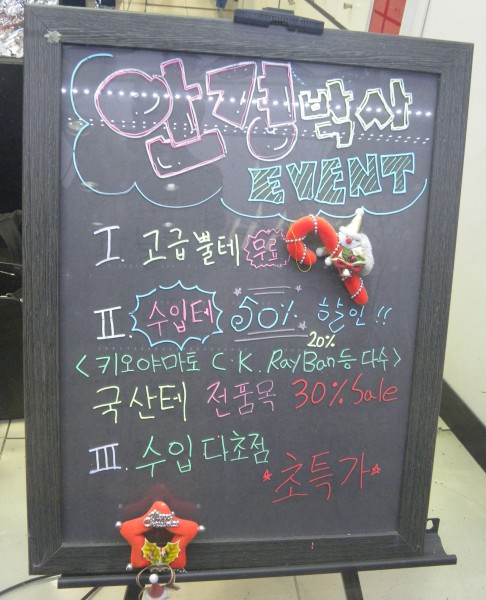 안경박사
EVENT
I. 고급뿔테 무료
II. 수입테 50% 할인!!
20%
<키오야마토 C K. RayBan등 다수>
국산테 전품목 30% Sale
III. 수입 다초점
*초특가*